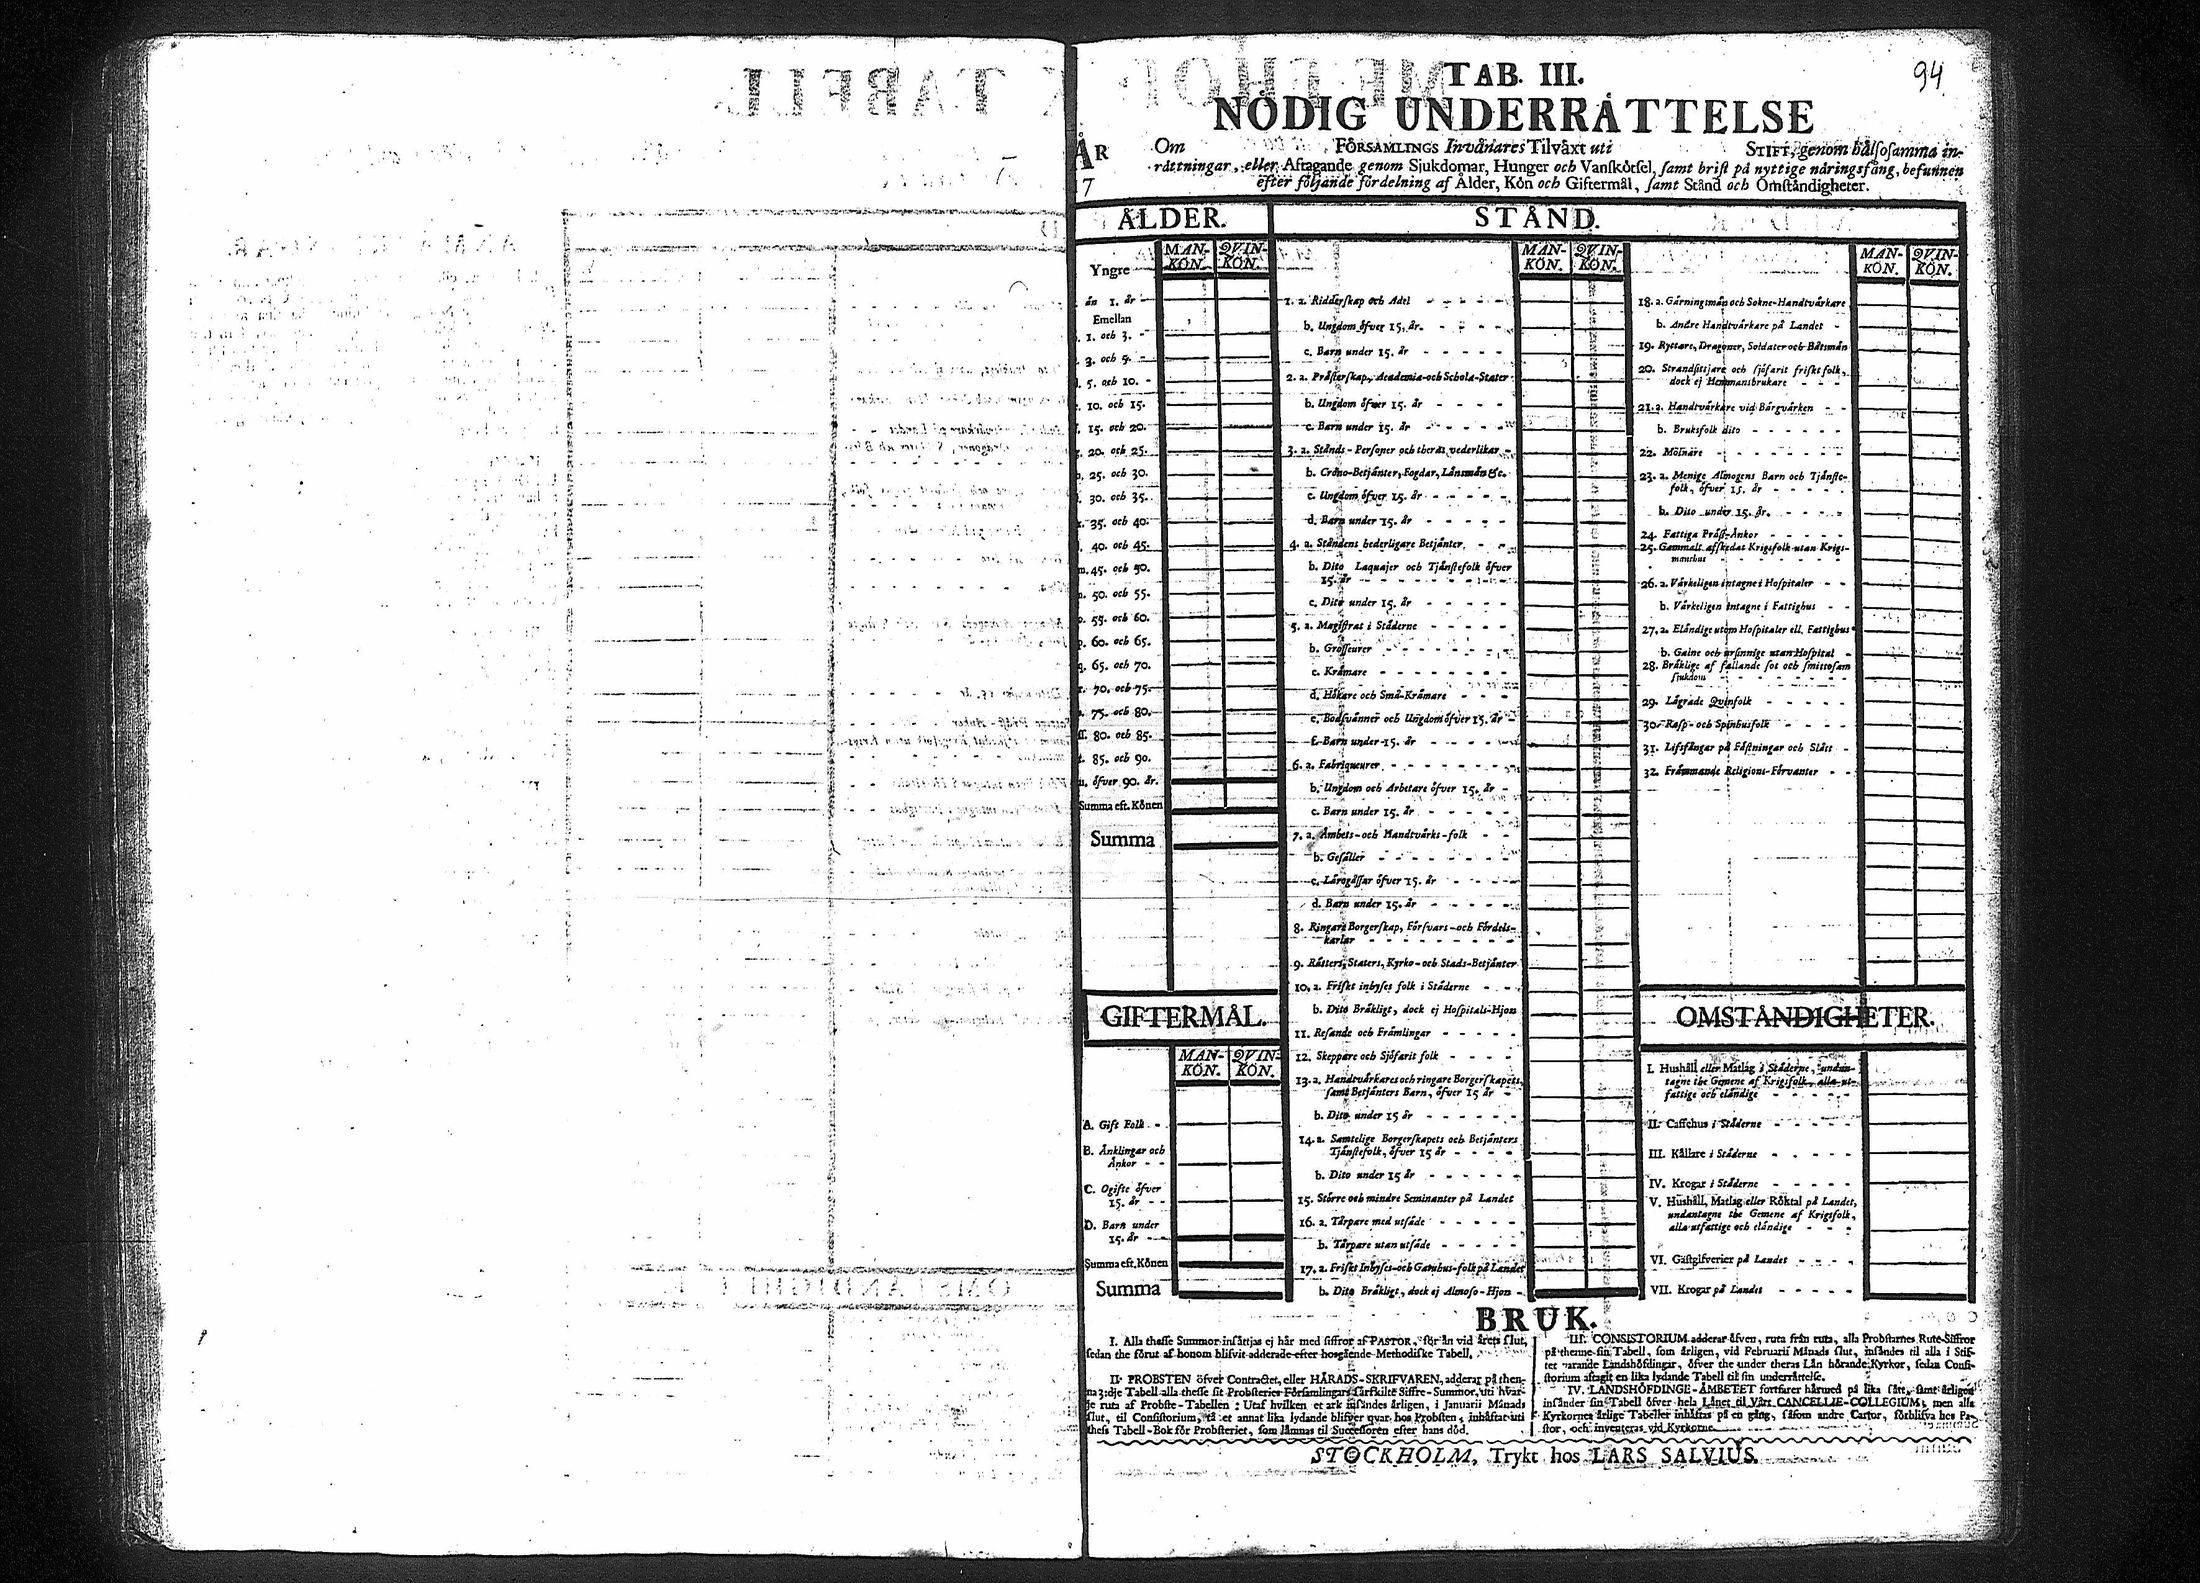 94
TAB. III.
NÖDIG UNDERRÅTTELSE
ÅR Om FÖRSAMLINGS Invånares Tilvåxt uti STIFT, genom hålsosamma in-
råttningar, eller Aftagande genom Sjukdomar, Hunger och Vanskötsel, samt brist på nyttige näringsfång, befunnen
17 efter följande fördelning af Ålder, Kön och Giftermål, samt Stånd och Omståndigheter.
ÅLDER.
MAN-KÖN. QVIN-KÖN.
Yngre
än 1. år
Emellan
1. och 3.
3. och 5.
5. och 10.
10. och 15.
15. och 20.
20. och 25.
25. och 30.
30. och 35.
35. och 40.
40. och 45.
m. 45. och 50.
50. och 55.
o. 55. och 60.
p. 60. och 65.
q. 65. och 70.
r. 70. och 75.
s. 75. och 80.
ss. 80. och 85.
t. 85. och 90.
u. öfver 90. år.
Summa eft. Könen
Summa
GIFTERMÅL.
MAN-KÖN. QVIN-KÖN.
A. Gift Folk
B. Änklingar och
Änkor
C. Ogifte öfver
15. år
D. Barn under
15. år
Summa eft. Könen
Summa
STÅND.
MAN-KÖN. QVIN-KÖN.
1. a. Ridderskap och Adel
b. Ungdom öfver 15. år.
c. Barn under 15. år
2. a. Pråsterskap, Academia- och Schola-Stater
b. Ungdom öfver 15. år
c. Barn under 15. år
3. a. Stånds-Personer och theras vederlikar
b. Crono-Betjänter, Fogdar, Länsmän &c.
c. Ungdom öfver 15. år
d. Barn under 15. år
4. a. Ståndens hederligare Betjänter
b. Dito Laquajer och Tjånstefolk öfver
15. år
c. Dito under 15. år
5. a. Magistrat i Ståderne
b. Grosseurer
c. Kråmare
d. Hökare och Små-Kråmare
e. Bodsvånner och Ungdom öfver 15. år
f. Barn under 15. år
6. a. Fabriqueurer
b. Ungdom och Arbetare öfver 15. år
c. Barn under 15. år
7. a. Åmbets- och Handtvårks-folk
b. Gesåller
c. Lårogåssar öfver 15. år
d. Barn under 15. år
8. Ringare Borgerskap, Försvars- och Fördels-
karlar
9. Råtters, Staters, Kyrko- och Stads-Betjänter
10. a. Friskt inhyses folk i Ståderne
b. Dito Bråkligt, dock ej Hospitals-Hjon
11. Resande och Främlingar
12. Skeppare och Sjöfarit folk
13. a. Handtvårkares och ringare Borgerskapets,
samt Betjänters Barn, öfver 15 år
b. Dito under 15 år
14. a. Samtelige Borgerskapets och Betjänters
Tjånstefolk, öfver 15 år
b. Dito under 15 år
15. Större och mindre Seminanter på Landet
16. a. Tårpare med utsåde
b. Tårpare utan utsåde
17. a. Friskt Inhyses- och Gatuhus-folk på Landet
b. Dito Bråkligt, dock ej Almoso-Hjon
MAN-KÖN. QVIN-KÖN.
18. a. Gårningsmän och Sokne-Handtvårkare
b. Andre Handtvårkare på Landet
19. Ryttare, Dragoner, Soldater och Båtsmån
20. Strandsittjare och sjöfarit friskt folk,
dock ej Hemmansbrukare
21. a. Handtvårkare vid Bårgvårken
b. Bruksfolk dito
22. Mölnare
23. a. Menige Almogens Barn och Tjånste-
folk, öfver 15. år
b. Dito under 15. år.
24. Fattiga Pråst-Änkor
25. Gammalt afskedat Krigsfolk utan Krigs-
manshus
26. a. Vårkeligen intagne i Hospitaler
b. Vårkeligen intagne i Fattighus
27. a. Elåndige utom Hospitaler ell. Fattighus
b. Galne och ursinnige utan Hospital
28. Bråklige af fallande sot och smittosam
sjukdom
29. Lågrade Qvinfolk
30. Rasp- och Spinhusfolk
31. Lifsfångar på Fåstningar och Slått
32. Främmande Religions-Förvanter
OMSTÅNDIGHETER.
I. Hushåll eller Matlag i Ståderne, undan-
tagne the Gemene af Krigsfolk, alla ut-
fattige och elåndige
II. Caffehus i Ståderne
III. Kållare i Ståderne
IV. Krogar i Ståderne
V. Hushåll, Matlag eller Röktal på Landet,
undantagne the Gemene af Krigsfolk,
alla utfattige och elåndige
VI. Gåstgifverier på Landet
VII. Krogar på Landet
BRUK.
I. Alla thesse Summor insåttjas ej hår med siffror af PASTOR, för ån vid årets slut,
sedan the förut af honom blifvit adderade efter hosgående Methodiske Tabell.
II. PROBSTEN öfver Contractet, eller HÅRADS-SKRIFVAREN, adderar på then-
na 3:dje Tabell alla thesse sit Probsteries Församlingars sårskilte Siffre-Summor, uti hvar-
je ruta af Probste-Tabellen: Utaf hvilken et ark insåndes årligen, i Januarii Månads
slut, til Consistorium, tå et annat lika lydande blifver qvar hos Probsten, inhåftat uti
thess Tabell-Bok för Probsteriet, som låmnas til Successoren efter hans död.
III. CONSISTORIUM adderar åfven, ruta från ruta, alla Probstarnes Rute-Siffror
på thenne sin Tabell, som årligen, vid Februarii Månads slut, insåndes til alla i Stif-
tet varande Landshöfdingar, öfver the under theras Lån hörande Kyrkor, sedan Consi-
storium aftagit en lika lydande Tabell til sin underråttelse.
IV. LANDSHÖFDINGE-ÅMBETET fortfarer hårmed på lika sått, samt årligen
insånder sin Tabell öfver hela Lånet til Vårt CANCELLIE-COLLEGIUM; men alla
Kyrkornes årlige Tabeller inhåftas på en gång, såsom andre Cartor, förblifva hos Pa-
stor, och inventeras vid Kyrkorne.
STOCKHOLM, Trykt hos LARS SALVIUS.